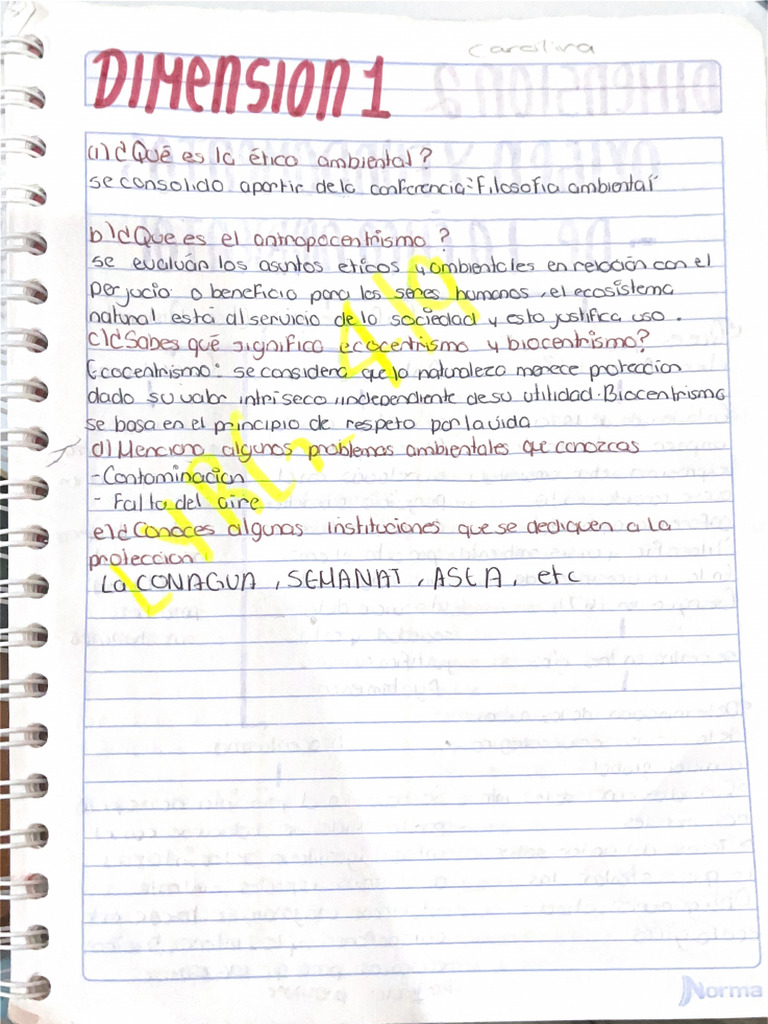 Carolina
DIMENSION 1
a) ¿Qué es la ética ambiental?
se consolido apartir de la conferencia: Filosofia ambiental
b) ¿Que es el antropocentrismo ?
se evaluán los asuntos eticos y ambientales en relación con el
perjucio o beneficio para los seres humanos, el ecosistema
natural está al servicio de la sociedad y esto justifica uso.
c) ¿Sabes qué significa ecocentrismo y biocentrismo?
Ecocentrismo: se considera que la naturaleza merece protección
dado su valor intriseco, independiente de su utilidad. Biocentrismo
se basa en el principio de respeto por la vida
d) Menciona algunos problemas ambientales que conozcas
- Contaminacion
- Falta del aire
e) ¿Conoces algunas instituciones que se dediquen a la
proteccion?
La CONAGUA, SEMANAT, ASEA, etc
Norma